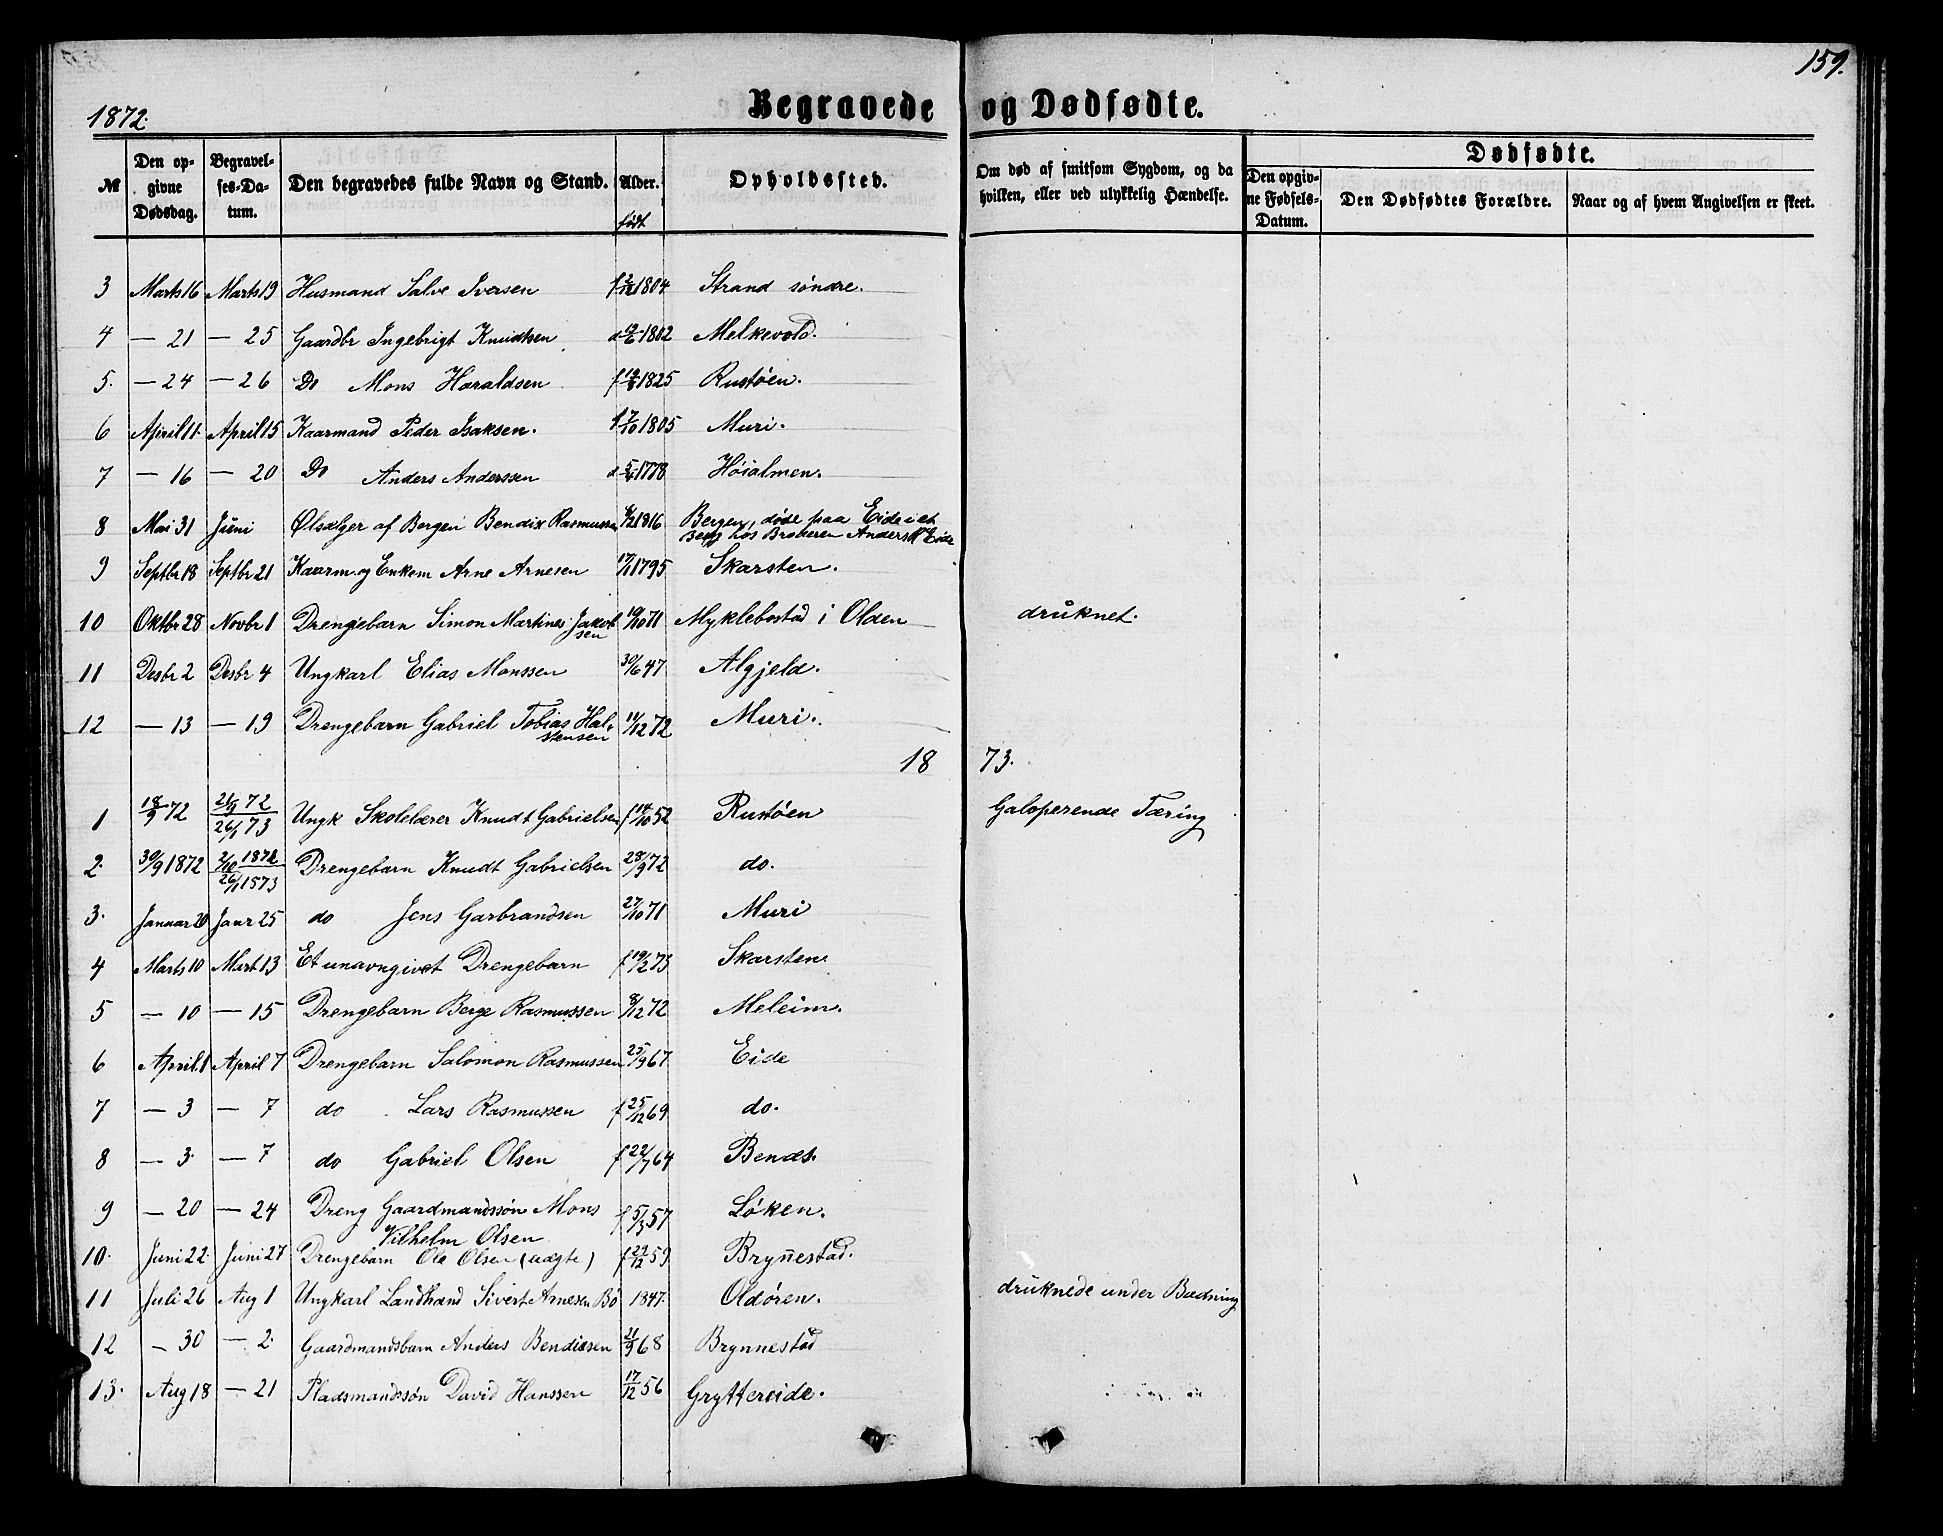 159.
1872.
Begravede og Dødfødte.
№ | Den opgivne Dødsdag. | Begravelses-Datum. | Den begravedes fulde Navn og Stand. | Alder. født | Opholdssted. | Om død af smitsom Sygdom, og da hvilken, eller ved ulykkelig Hændelse. | Dødfødte. | Den opgivne Fødsels-Datum. | Den Dødfødtes Forældre. | Naar og af hvem Angivelsen er skeet.
3 Marts 16 Marts 19 Husmand Salve Iversen 1804 Strand søndre.
4 — 21 — 25 Gaardbr Ingebrigt Knudtsen 1802 Melkevold.
5. — 24 — 26 Do Mons Haraldsen 1825 Rustøen.
6 April 11. April 15 Kaarmand Peder Isaksen. f 7/10 1805 Muri.
7 — 16 — 20 Do Anders Anderssen 1778 Høialmen.
8 Mai 31 Juni Ølsælger af Bergen Bendix Rasmussen 1816 Bergen, døde paa Eide i et
Besøg hos Broderen Anders Eide
9 Septbr 18 Septbr 21 Kaarm. og Enkem Arne Arnesen 1795 Skarsten.
10 Oktbr 28 Novbr 1 Drengebarn Simon Martines Jakobsen 19/10 71 Myklebostad i Olden druknet.
11 Desbr 2 Desbr 4 Ungkarl Elias Monssen 30/6 47 Algjeld.
12 — 13 — 19 Drengebarn Gabriel Tobias Halstensen 11/12 72 Muri.
1873.
1 18/9 72 21/9 72 26/1 73 Ungk Skolelærer Knudt Gabrielsen f 14/10 52 Rustøen Galoperende Tæring
2. 30/9 1872 2/10 1872 26/1 1573 Drengebarn Knudt Gabrielsen 28/9 72 do.
3. Januar 20 Janur 25 do Jens Garbrandsen 27/10 71 Muri
4 Marts 10 Mart 13 Et unavngivet Drengebarn f 19/2 73 Skarsten
5 — 10 — 15 Drengebarn Berge Rasmussen 8/12 72 Meleim.
6 April 1 April 7 Drengebarn Salomon Rasmussen 25/9 67 Eide
7 — 3 — 7 do Lars Rasmussen f 25/12 69 do.
8 — 3. — 7 do Gabriel Olsen f 22/7 64 Benæs.
9 — 20 — 24 Dreng Gaardmandssøn Mons f 5/3 57 Løken.
Vilhelm Olsen
10. Juni 22. Juni 27 Drengebarn Ole Olsen (uægte) f 22/12 59 Bryn̄estad.
11 Juli 26 Aug 1 Ungkarl Landhand Sivert Arnesen Bø 1847. Oldøren. druknede under Badning
12 — 30 — 2. Gaardmandsbarn Anders Bendixsen 21/9 68 Brynnestad
13. Aug 18 — 21 Pladsmandssøn David Hanssen 17/12 56 Gryttereide.